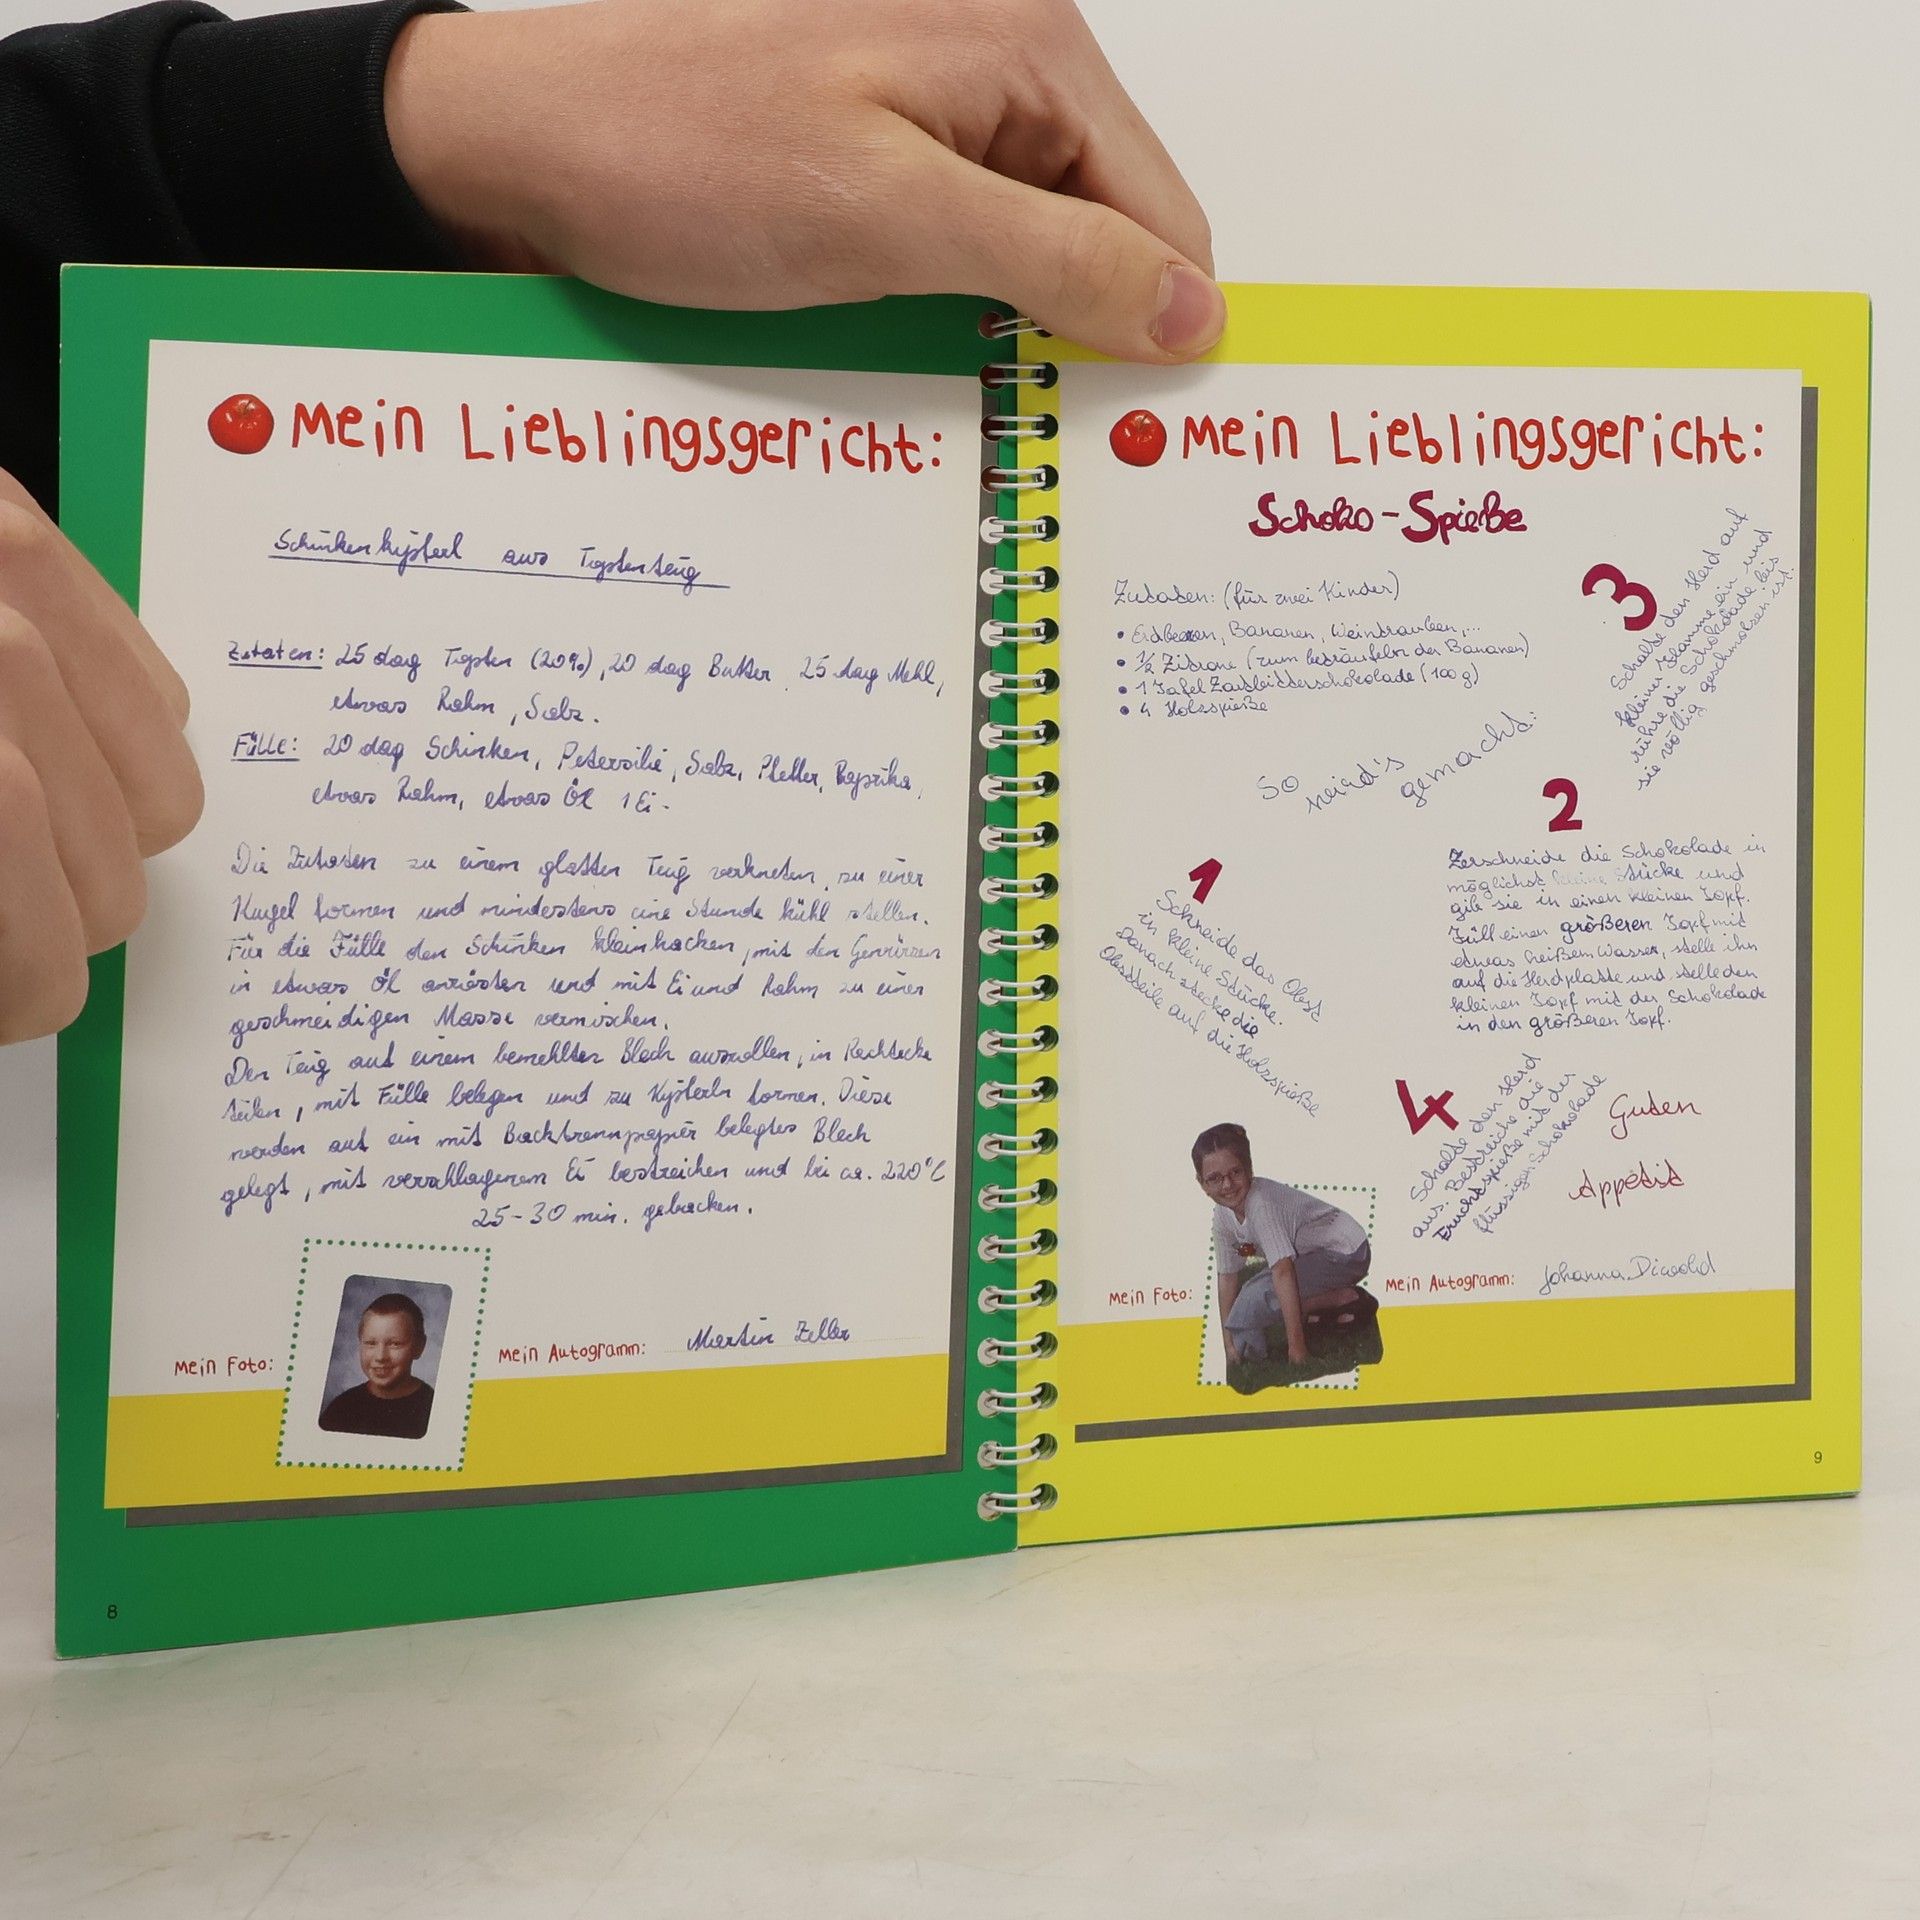 Mein Lieblingsgericht:
Schinkenkipferl aus Topfenteig
Zutaten: 25 dag Topfen (20%), 20 dag Butter, 25 dag Mehl,
etwas Rahm, Salz.
Fülle: 20 dag Schinken, Petersilie, Salz, Pfeffer, Paprika,
etwas Rahm, etwas Öl 1 Ei.
Die Zutaten zu einem glatten Teig verkneten, zu einer
Kugel formen und mindestens eine Stunde kühl stellen.
Für die Fülle den Schinken kleinhacken, mit den Gewürzen
in etwas Öl anrösten und mit Ei und Rahm zu einer
geschmeidigen Masse vermischen.
Den Teig auf einem bemehlten Blech ausrollen, in Rechtecke
teilen, mit Fülle belegen und zu Kipferln formen. Diese
werden auf ein mit Backtrennpapier belegtes Blech
gelegt, mit verschlagenem Ei bestreichen und bei ca. 220°C
25-30 min. gebacken.
Mein Foto:
Mein Autogramm: Martin Zeller
8
Mein Lieblingsgericht:
Schoko-Spieße
Zutaten: (für zwei Kinder)
• Erdbeeren, Bananen, Weintrauben,...
• 1/2 Zitrone (zum beträufeln der Bananen)
• 1 Tafel Zartbitterschokolade (100g)
• 4 Holzspieße
So wird's gemacht:
1
Schneide das Obst
in kleine Stücke.
Danach stecke die
Obstteile auf die Holzspieße
2
Zerschneide die Schokolade in
möglichst kleine Stücke und
gib sie in einen kleinen Topf.
Füll einen größeren Topf mit
etwas heißem Wasser, stelle ihn
auf die Herdplatte und stelle den
kleinen Topf mit der Schokolade
in den größeren Topf.
3
Schalte den Herd auf
kleiner Flamme ein und
rühre die Schokolade bis
sie völlig geschmolzen ist.
4
Schalte den Herd
aus. Bestreiche die
Fruchtspieße mit der
flüssigen Schokolade
Guten
Appetit
Mein Foto:
Mein Autogramm: Johanna Diwold
9